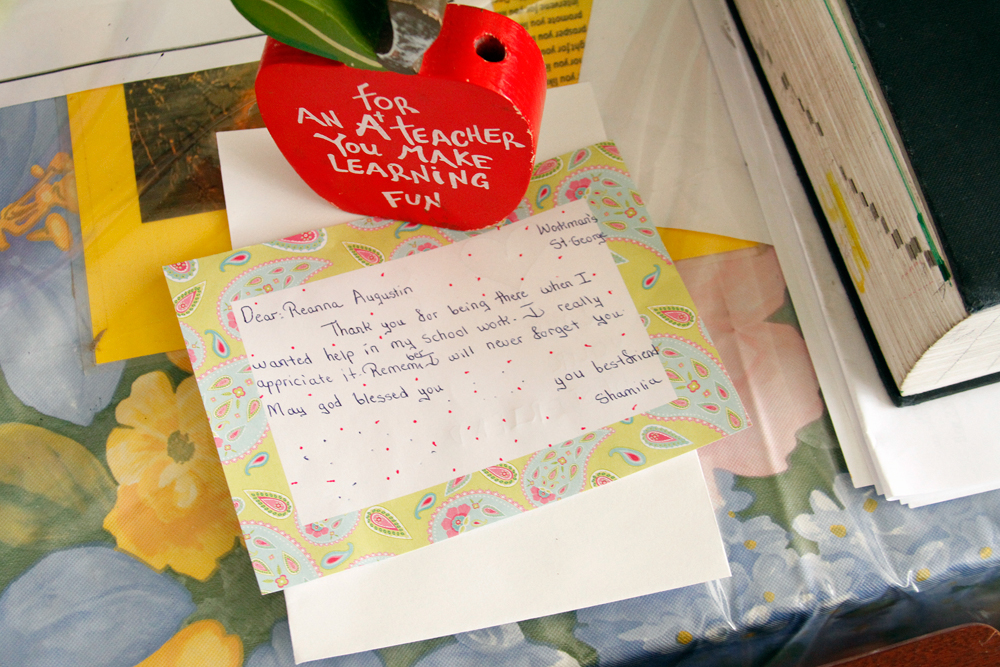 FOR
AN A+ TEACHER
YOU MAKE
LEARNING
FUN
Workman's
St. George
Dear: Reanna Augustin
Thank you for being there when I
wanted help in my school work. I really
appriciate it. Remember I will never forget you.
May god blessed you
you best friend
Shamilia